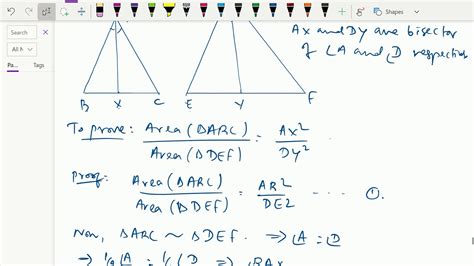 Shapes
Search
All N
Pa...
AX and DY are bisector
of ∠A and ∠D respectively
B X C E Y F
To prove: Area(ΔABC)/Area(ΔDEF) = AX²/DY²
Proof: Area(ΔABC)/Area(ΔDEF) = AB²/DE² ---- ①.
Now, ΔABC ~ ΔDEF. ⇒ ∠A = ∠D